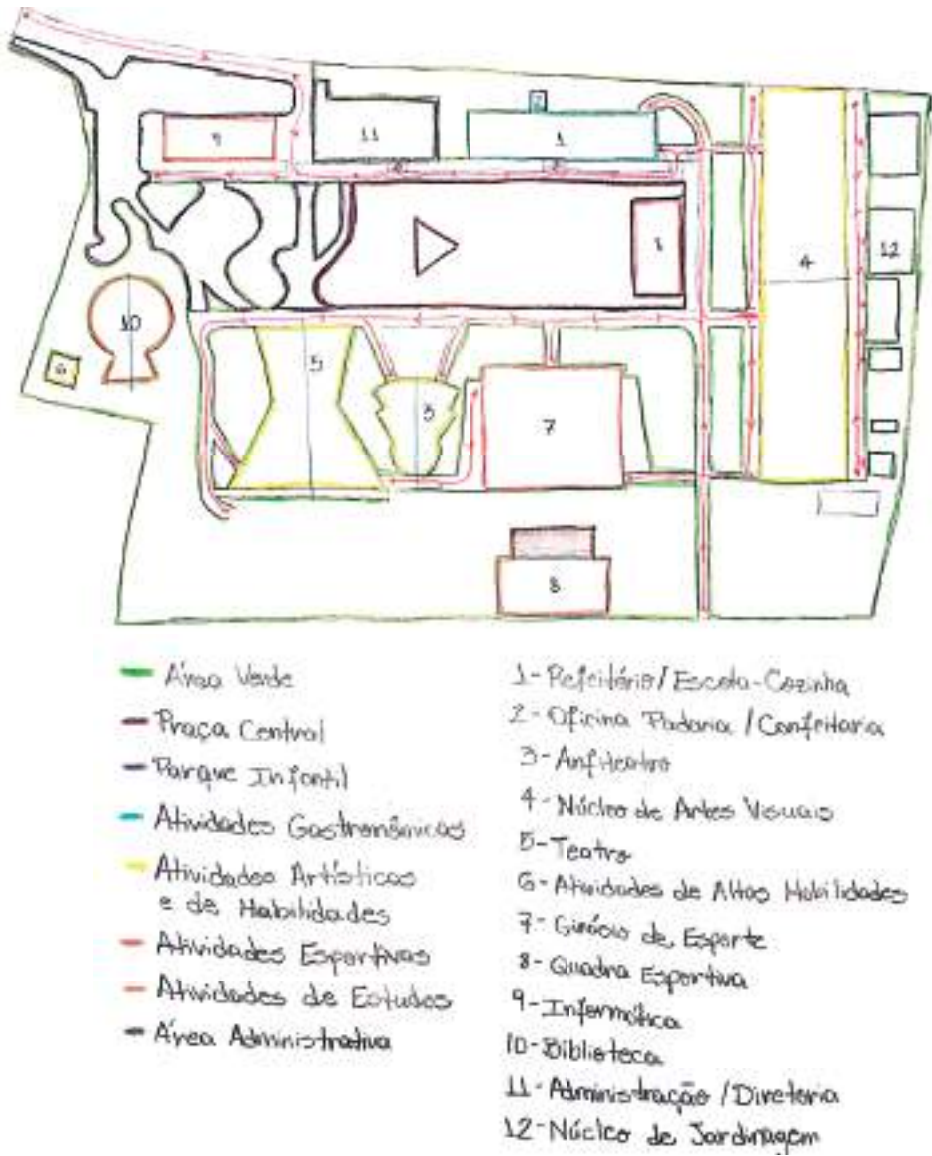 2
9
11
1
4
12
10
5
6
3
7
8
Área Verde
Praça Central
Parque Infantil
Atividades Gastronômicas
Atividades Artísticas
e de Habilidades
Atividades Esportivas
Atividades de Estudos
Área Administrativa
1-Refeitório/Escola-Cozinha
2-Oficina Padaria /Confeitaria
3-Anfiteatro
4-Núcleo de Artes Visuais
5-Teatro
6-Atividades de Altas Habilidades
7-Ginásio de Esporte
8-Quadra Esportiva
9-Informática
10-Biblioteca
11-Administração /Diretoria
12-Núcleo de Jardinagem